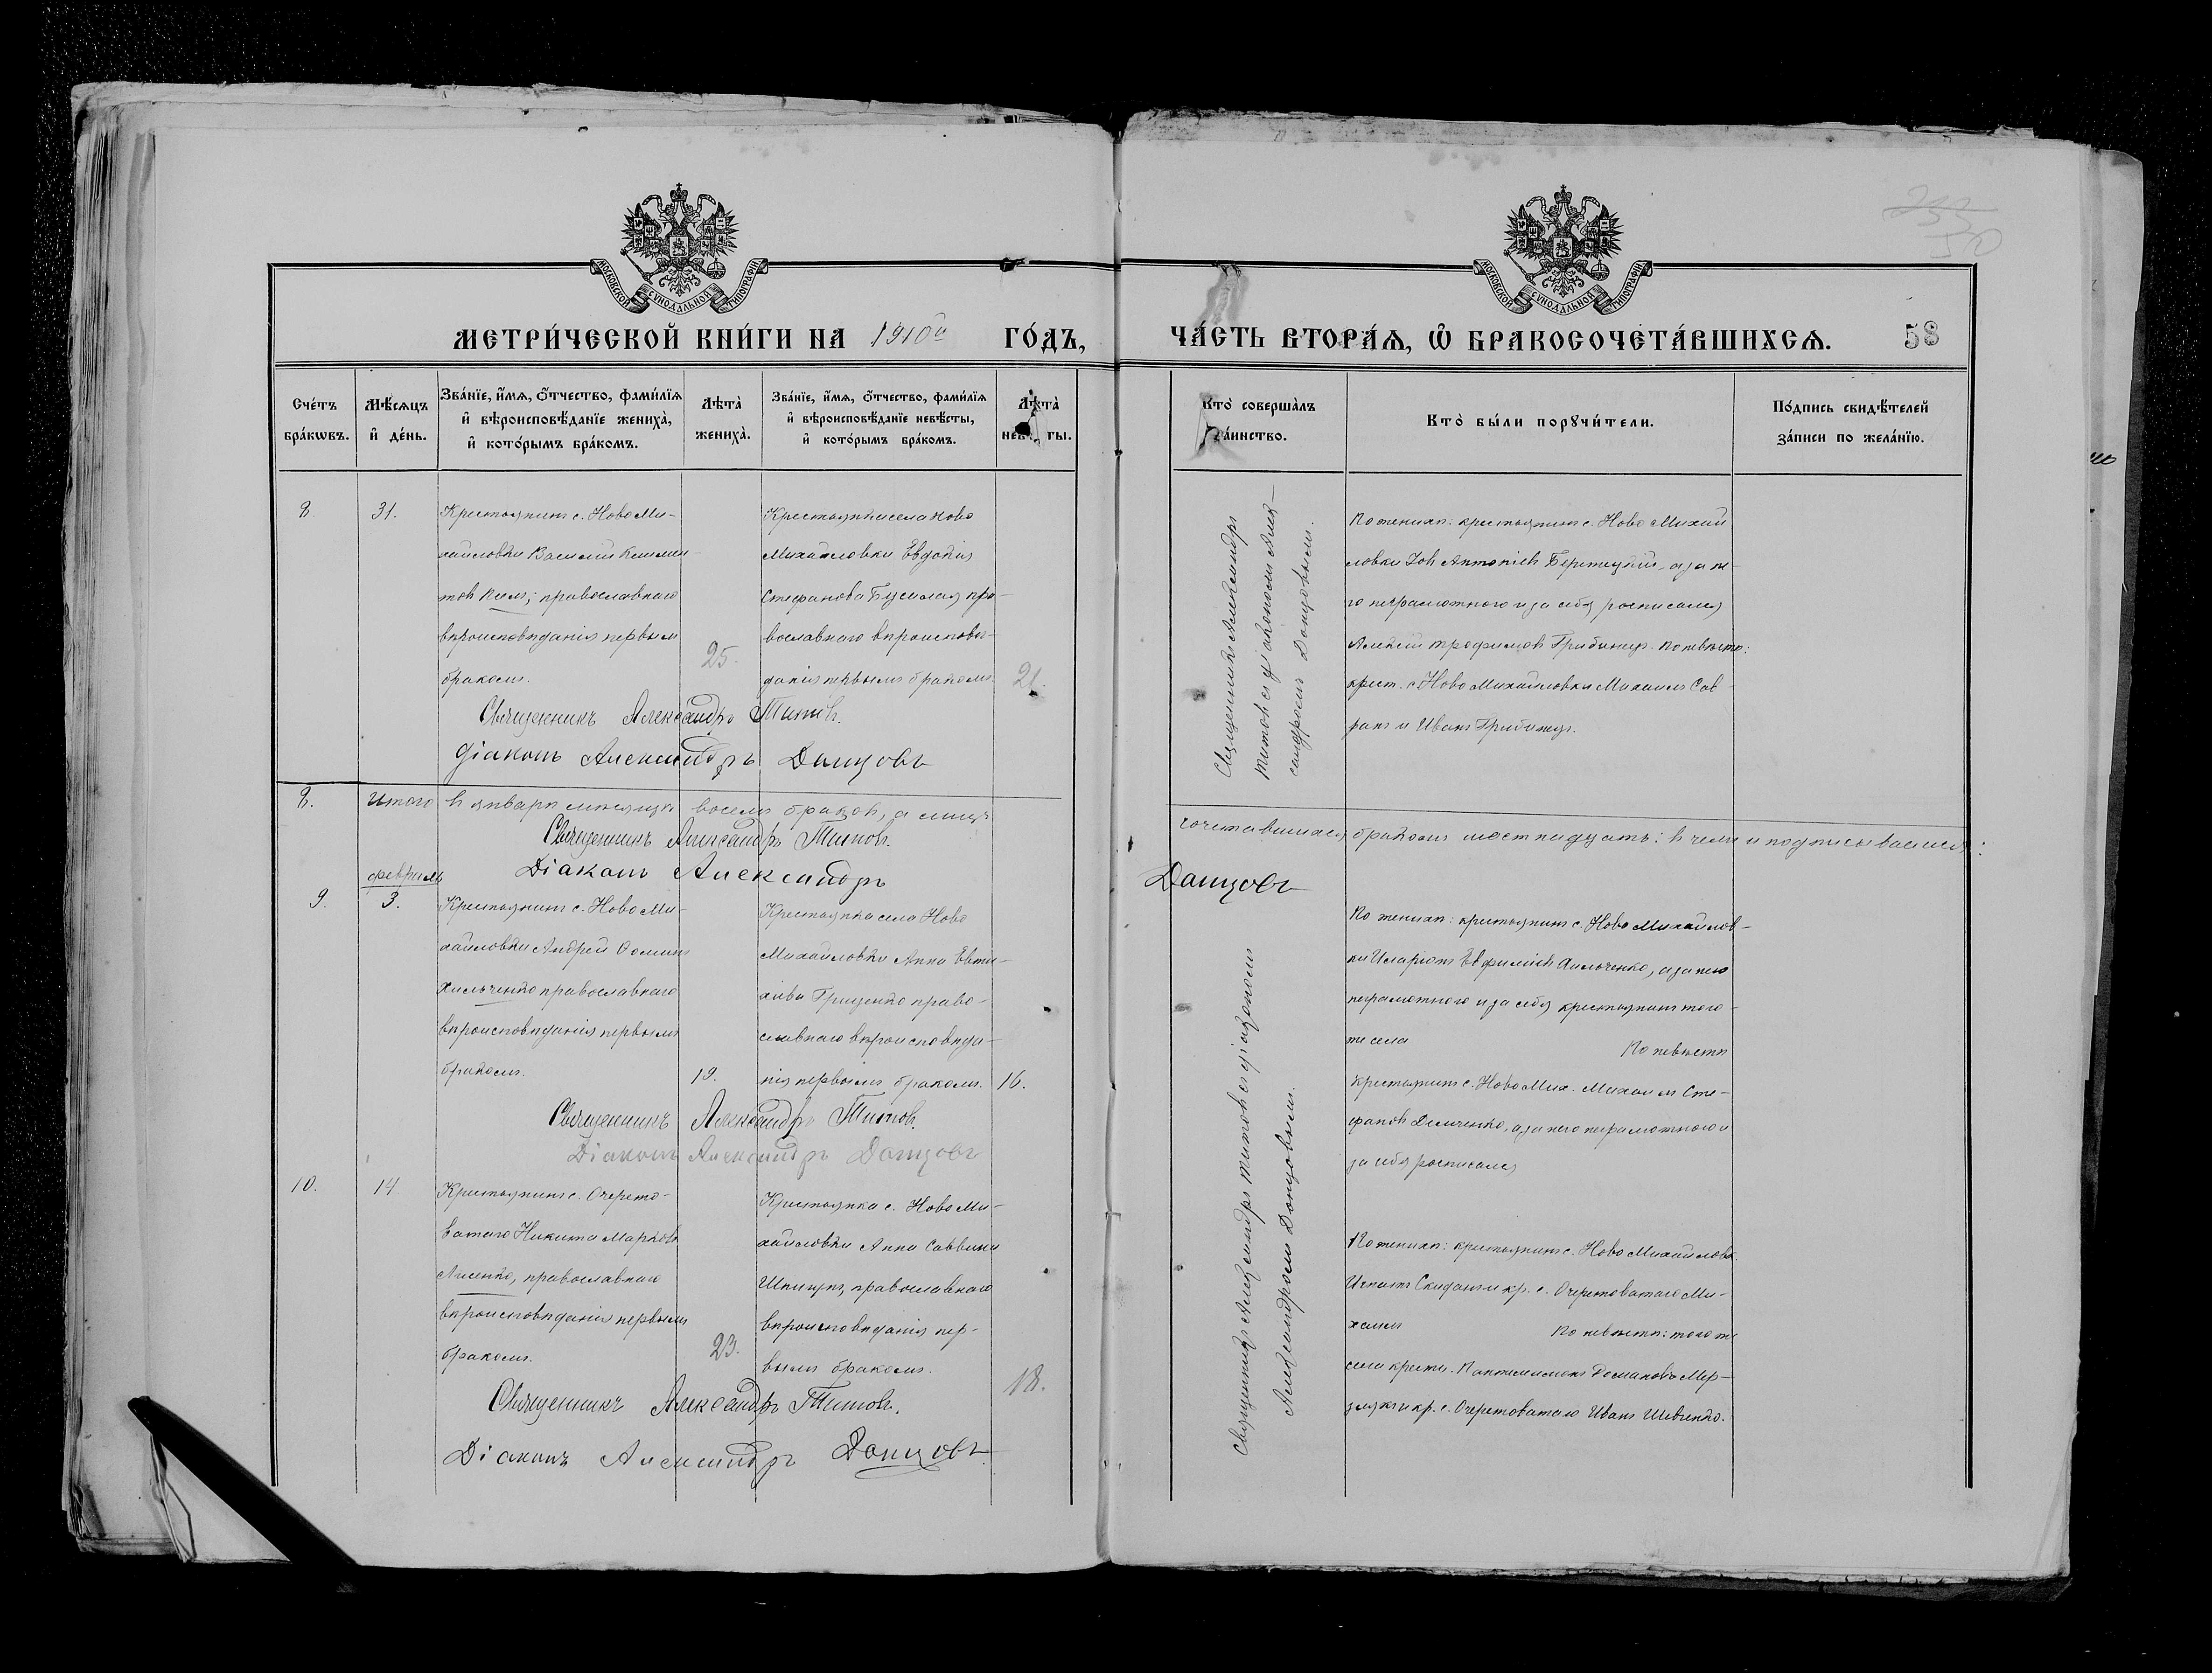 МОСКОВСКОЙ СѴНОДАЛЬНОЙ ТИПОГРАФІИ
МЕТРИ́ЧЕСКОЙ КНИ́ГИ НА 1910й ГО́ДЪ,
Сче́тъ бра́кѡвъ.
Мѣ́сѧцъ и҆ де́нь.
Зва́нїе, и҆́мѧ, ѻ҆́тчество, фами́лїѧ и҆ вѣроисповѣ́данїе жениха̀, и҆ кото́рымъ бра́комъ.
Лѣ́та̀ жениха̀.
Зва́нїе, и҆́мѧ, ѻ҆́тчество, фами́лїѧ и҆ вѣроисповѣ́данїе невѣ́сты, и҆ кото́рымъ бра́комъ.
Лѣ́та̀ нев ты.
8
31.
Крестьянинъ с. Ново Ми-
хайловки Василій Климен-
товъ Кимъ; православнаго
вѣроисповѣданія первымъ
бракомъ.
25.
Крестьянка села Ново
Михайловки Евдокія
Стефанова православнаго вѣроисповѣ-
данія первымъ бракомъ
21.
Священникъ Александръ Титовъ.
Діаконъ Александръ Донцовъ
8. Итого въ январѣ мѣсяцѣ восемь браковъ, а лицъ
Священникъ Александръ Титовъ.
Діаконъ Александръ
февраль
9.
3.
Крестьянинъ с. Ново Ми-
хайловки Андрей Ѳоминъ
Хильченко православнаго
вѣроисповѣданія первымъ
бракомъ.
19.
Крестьянка села Ново
Михайловки Анна Евти-
хіева Гриценко право-
славнаго вѣроисповѣда-
нія первымъ бракомъ.
16.
Священникъ Александръ Титовъ.
Діаконъ Александръ Донцовъ
10.
14
Крестьянинъ с. Очерето-
ватаго Никита Марковъ
Лисенко, православнаго
вѣроисповѣданія первымъ
бракомъ.
23.
Крестьянка с. Ново Ми-
хайловки Анна Саввина
православнаго
вѣроисповѣданія пер-
вымъ бракомъ.
18.
Священникъ Александръ Титовъ.
Діаконъ Александръ Донцовъ
МОСКОВСКОЙ СѴНОДАЛЬНОЙ ТИПОГРАФІИ
ЧА́СТЬ ВТОРА́Ѧ, Ѡ҆ БРАКОСОЧЕТА́ВШИХСѦ.
58
Кто̀ соверша̀лъ та́инство.
Кто̀ бы́ли порꙋчи́тели.
По́дпись свидѣ́телей за́писи по жела́нїю.
Священникъ Александръ
Титовъ съ діакономъ Алек-
сандромъ Донцовымъ.
По женихѣ: крестьянинъ с. Ново Михай
ловки Іовъ Антоніевъ Берницкій, а за не-
го неграмотнаго и за себя росписался
Алексій Трофимовъ Грибинецъ. По невѣстѣ:
крест. с. Ново Михайловки Михаилъ Сав
ранъ и Иванъ Грибинецъ.
сочетавшихся бракомъ шестнадцать: въ чемъ и подписываемся:
Донцовъ
Священникъ Александръ Титовъ съ діакономъ
Александромъ Донцовымъ.
По женихѣ: крестьянинъ с. Ново Михайлов-
ки Иларіонъ Евфиміевъ Хильченко, а за него
неграмотнаго и за себя крестьянинъ того-
же села По невѣстѣ
крестьянинъ с. Ново Мих. Михаилъ Сте-
фановъ Демченко, а за него неграмотнаго и
за себя росписался
По женихѣ: крестьянинъ с. Ново Михайловк.
Игнатъ Скиданъ и кр. с. Очеретоватаго Ми-
хаилъ По невѣстѣ: того же
села крестн. Пантелимонъ Домановъ Мер-
злякъ и кр. с. Очеретоватаго Иванъ Шевченко.